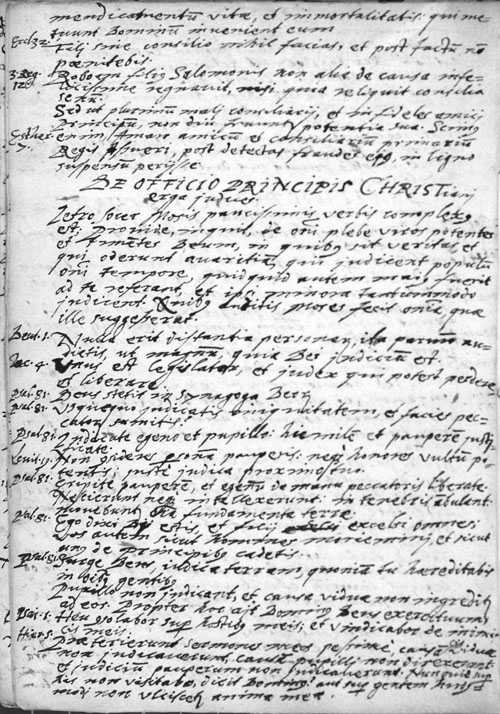 mendicamentū vitæ, et immortalitatis: qui me
tuunt Dominū invenient eum
Eccl: 32. Fili sine consilio nihil facias, et post factū nō
pœnitebis.
3. Reg: 12. Roboam filiꝰ Salomonis non alia de causa infe-
licissime regnavit, nisi quia reliquit consilia
senū.
Sed ut plurimū mali consiliarij, et infideles amici
Principum, non diu fruunt potentia sua. Scimꝰ
Esther 7. enim, Aman amicū et consiliariū primariū
Regis Asueri, post detectas fraudes eiꝰ, in ligno
suspensū perijsse
DE OFFICIO PRINCIPIS CHRISTiani
erga iudices.
Ietro socer Mosis paucissimis verbis complexꝰ
est: Provide, inquit, de oni plebe viros potentes
et timētes Deum, in quibꝰ sit veritas, et
qui oderunt avaritiā, qui judicent populū
oni tempore, quidquid autem maiꝰ fuerit
ad te referant, et ipsi minora tantummodo
judicent. Quibꝰ auditis Moses fecit onia, quæ
ille suggesserat.
Deut. 1. Nulla erit distantia personarū, ita parvum au-
dietis, ut magnū, quia Dei judiciū est.
Jac. 4. Unus est legislator, et judex qui potest perdere
et liberare.
Psal: 81. Deus stetit in synagoga Deorū
Psal: 81. Usquequo judicatis iniquitatem, et facies pec-
catorū sumitis?
Psal: 81. Judicate egeno et pupillo: humilē et pauperē justi-
ficate.
Levit: 19. Non consideres psonā pauperis: neqꝫ honores vultū po-
tentis: juste judica proximo tuo.
Psal: 81. Eripite pauperē, et egenū de manu peccatoris liberate.
Nescierunt neqꝫ intellexerunt: in tenebris ābulant:
movebunt onia fundamenta terræ.
Psal: 81. Ego dixi Dij estis, et filij excelsi omnes:
Vos autem sicut homines moriemini, et sicut
unꝰ de principibꝰ cadetis.
Psal: 81. Surge Deus, judica terram, quoniā tu hæreditabis
in oibꝰ gentibꝰ
Pupillo non judicant, et causa viduæ non ingredit
ad eos. Propter hoc ait Dominꝰ Deus exercituum,
Isai: 1. Heu consolabor sup hostibꝰ meis; et vindicabor de inimi-
cis meis.
Hier: 5. Præterierunt sermones meos pessime, causā viduæ
non judicaverunt, causā pupilli non direxerunt
et judiciū pauperum non judicaverunt. Nunquid sup
his non visitabo, dicit Dominꝰ? aut sup gentem hujꝰ
modi non ulciscet anima mea?